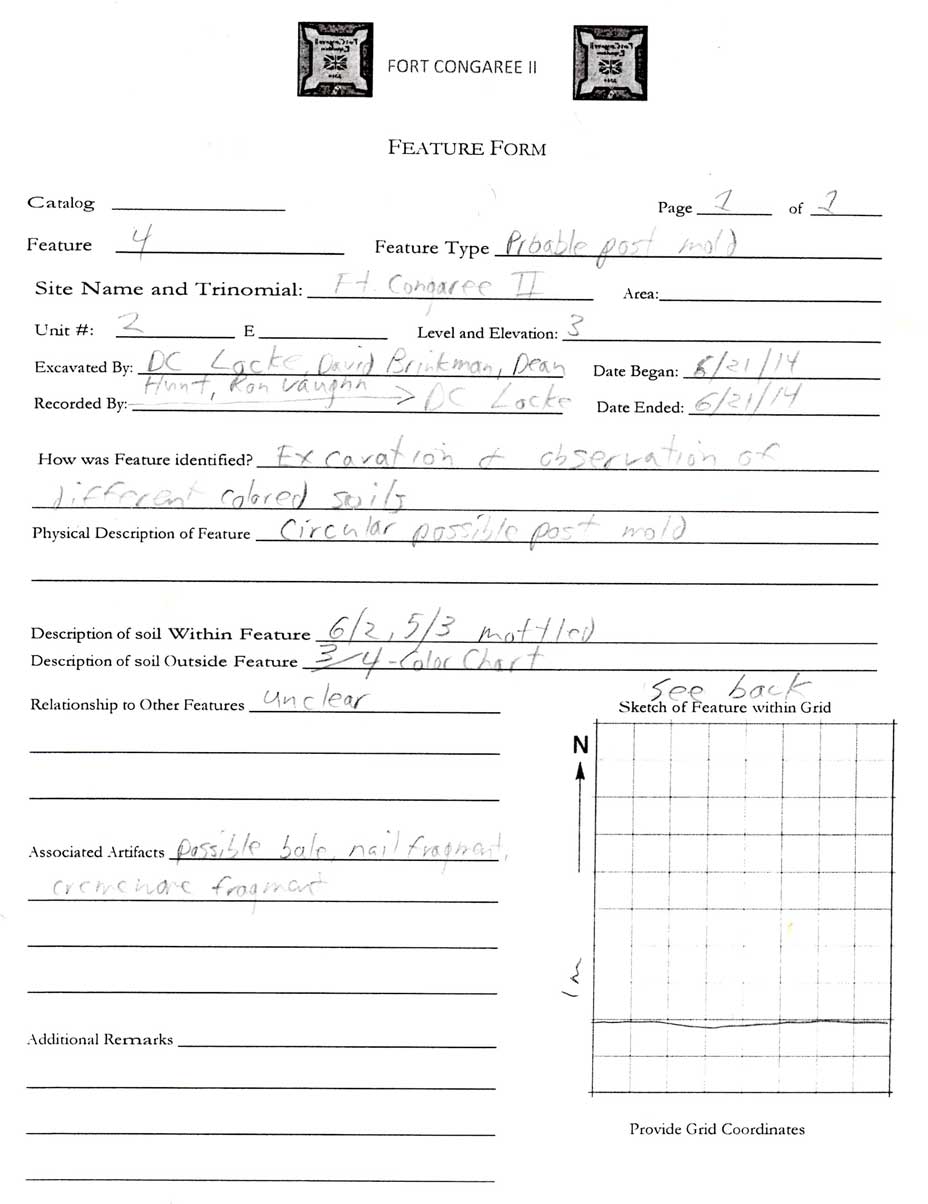 FORT CONGAREE II
FEATURE FORM
Catalog
Page 1 of 1
Feature 4 Feature Type Prbable post mold
Site Name and Trinomial: Ft. Congaree II Area:
Unit #: 2 E Level and Elevation: 3
Excavated By: DC Locke, David Brinkman, Dean Date Began: 6/21/14
Hunt, Ron Vaughn
Recorded By: DC Locke Date Ended: 6/21/14
How was Feature identified? Excavation & observation of
different colored soils
Physical Description of Feature Circular possible post mold
Description of soil Within Feature 6/2, 5/3 mottled
Description of soil Outside Feature 3/4-Color Chart
See back
Relationship to Other Features unclear Sketch of Feature within Grid
N
Associated Artifacts possible bale, nail fragment,
fragment
1 m
Additional Remarks
Provide Grid Coordinates